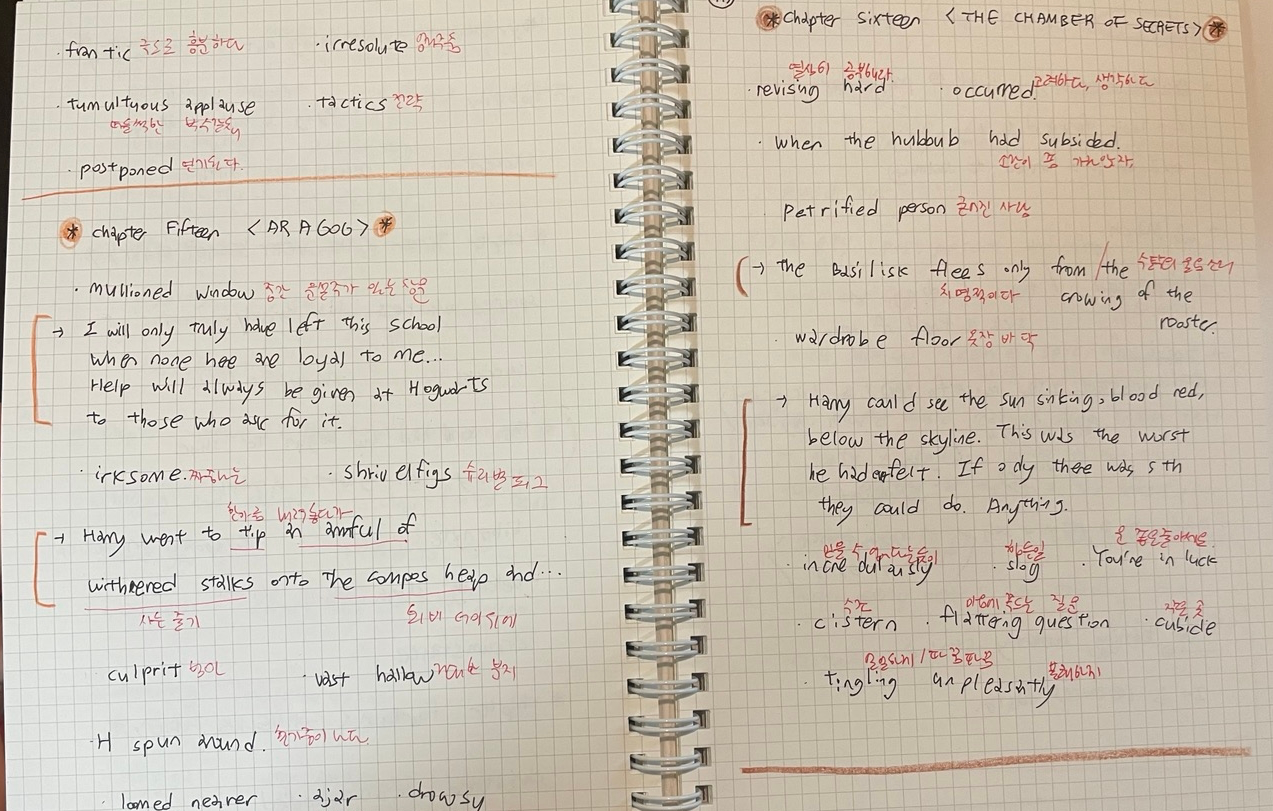 · frantic 극도로 흥분하다 · irresolute
· tumultuous applause · tactics 전략
박수갈채
· postponed 연기되다.
* Chapter Fifteen < ARAGOG > *
· mullioned window 중간 문설주가 있는 창문
→ I will only truly have left this school
when none hee are loyal to me...
Help will always be given at Hogwarts
to those who ask for it.
· irksome. 짜증나는 · shrivelfigs
→ Harry went to tip an armful of
withnered stalks onto the compos heap and...
시든 줄기 퇴비 더미위에
culprit 범인 · vast hallow 거대한 분지
· H spun around.
· loomed nearer · ajar · drowsy
* Chapter sixteen < THE CHAMBER OF SECRETS > *
열심히 공부해라.
· revising hard · occurred. 고려하다, 생각하다
· when the hubbub had subsided.
소란이 좀 가라앉자,
petrified person 굳어진 사람
→ The Basilisk flees only from / the 수탉의 울음소리
치명적이다 crowing of the
rooster.
· wardrobe floor 옷장 바닥
→ Harry could see the sun sinking, blood red,
below the skyline. This was the worst
he had ever felt. If only there was sth
they could do. Anything.
믿을 수 없다는듯이 힘든일 운 좋은줄아세요
· incredulously · slog · You're in luck
· cistern · flattering question · cubicle
· tingling unpleasantly 불쾌하게